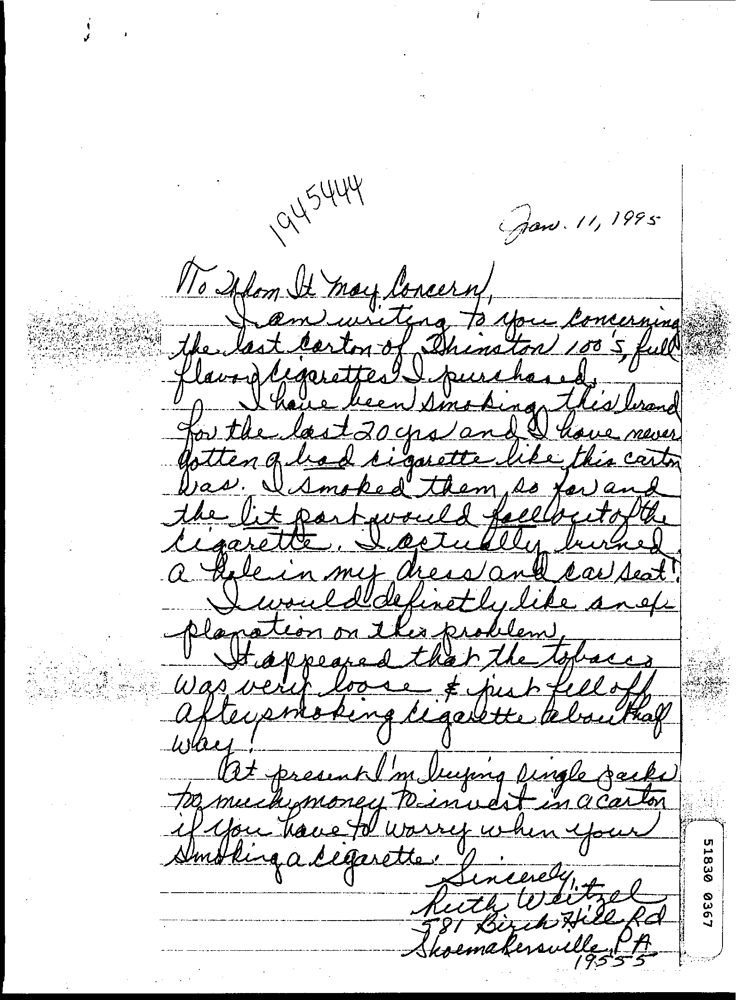 1945444
Jan. 11, 1995
To Whom It May Concern,
I am writing to you concerning
the last carton of Winston 100's, full
flavor cigarettes I purchased.
I have been smoking this brand
for the last 20 yrs and I have never
gotten a bad cigarette like this carton
was. I smoked them so far and
the lit part would fall out of the
cigarette. I actually burned
a hole in my dress and car seat!
I would definetly like an ex
planation on this problem.
It appeared that the tobacco
was very loose & just fell off
after smoking cigarette about half
way!
At present I'm buying single packs
to much money to invest in a carton
if you have to worry when your
smoking a cigarette.
Sincerely,
Ruth Weitzel
581 Birch Hill Rd
Shoemakersville, PA
19555
51830 0367